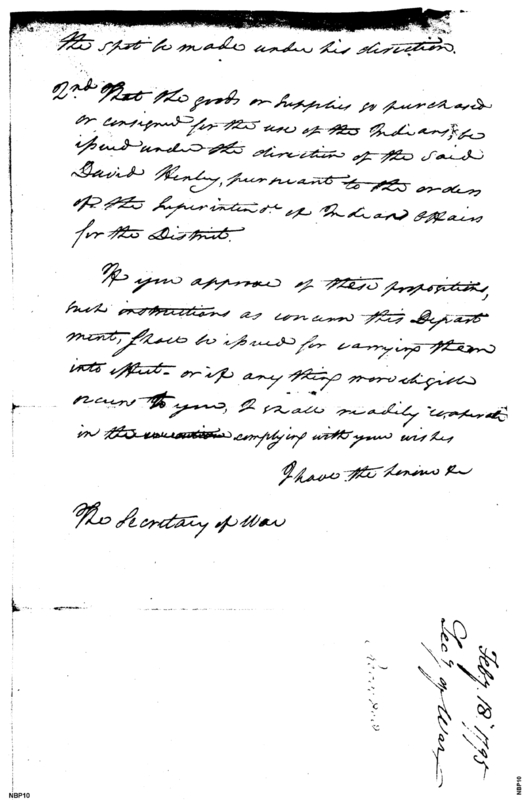 the spot be made under his direction.
2nd. That the goods or Supplies so purchased
or consigned for the use of the Indians, be
issued under the direction of the said
David Henley, pursuant to the orders
of the Superintendt. of Indian Affairs
for the District.
If you approve of these propositions,
such instructions as concern this Depart
ment, shall be issued for carrying them
into effect - or if any thing more eligible
occurs to you, I shall readily cooperate
in the complying with your wishes
I have the honor &c
The Secretary of War
Feby. 18 1795
Secy of War
NBP10
NBP10